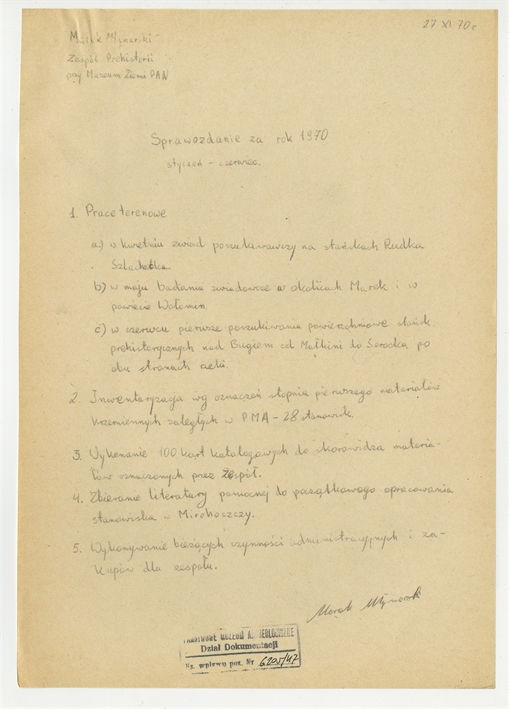 27 XI 70 r
Marek Młynarski
Zespół Prehistorii
przy Muzeum Ziemi PAN
Sprawozdanie za rok 1970
styczeń - czerwiec.
1. Prace terenowe
a) w kwietniu zwiad poszukiwawczy na stańskach Rudka
Szlachetka
b) w maju badania zwiadowcze w okolicach Marek i w
powiecie Wołomin.
c) w czerwcu pierwsze poszukiwania powierzchniowe stanisk
prehistorycznych nad Bugiem od Małkini do Serocka po
obu stronach rzeki.
2. Inwentaryzacja wg oznaczeń stopnia pierwszego materiałów
krzemiennych zaległych w PMA - 28 stanowisk.
3. Wykonanie 100 kart katalogowych do skorowidza materia-
łów oznaczonych przez Zespół.
4. Zbieranie literatury pomocnej do początkowego opracowania
stanowiska w
5. Wykonywanie bieżących czynności administracyjnych i za-
kupów dla zespołu.
Marek Młynarski
PAŃSTWOWE MUZEUM ARCHEOLOGICZNE
Dział Dokumentacji
Ks. wpływu poz. Nr 6205/47